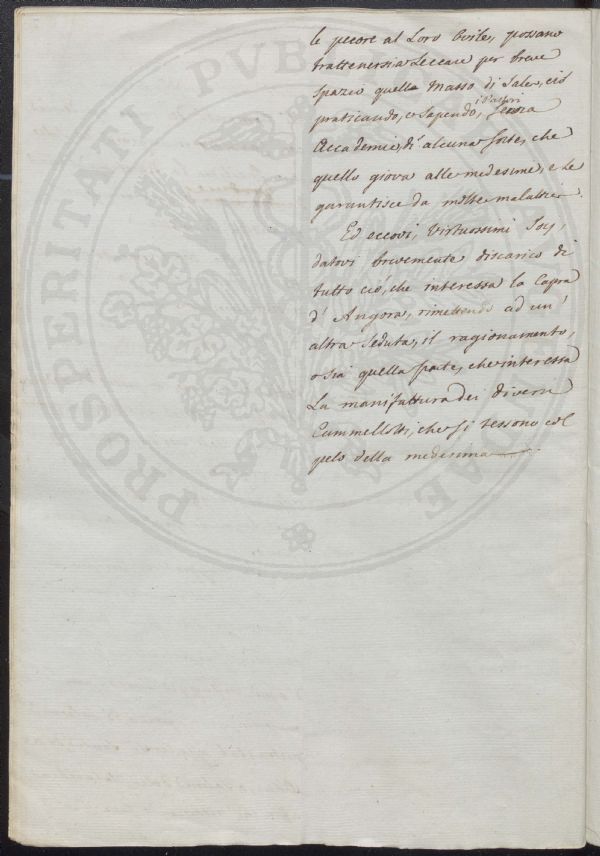 le pecore al Loro Ovile, possano
trattenersi a Leccare per breve
spazio quella Massa di Sale, ciò
praticando, e Sapendo, i Pastori senza
Accademie, di alcuna sorte, che
quello giova alle medesime, e le
garantisce da molte malattie.
Ed eccovi, Virtuosissimi Socj,
datovi brevemente discarico di
tutto ciò, che interessa la Capra
d'Angora, rimettendo ad un'
altra Seduta, il ragionamento,
o sia quella parte, che interessa
La manifattura dei diversi
Cammellotti, che si tessono col
pelo della medesima
PROSPERITATI PUBLICAE